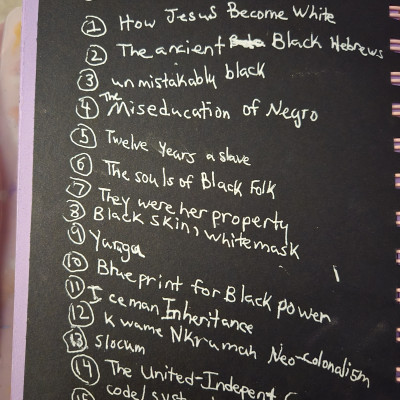 ① How Jesus Become White
② The ancient Black Hebrews
③ unmistakably black
④ The Miseducation of Negro
⑤ Twelve Years a slave
⑥ The souls of Black Folk
⑦ They were her property
⑧ Black skin, white mask
⑨ Yanga
⑩ Blueprint for Black power
⑪ Iceman Inheritance
⑫ Kwame NKrumah Neo-Colonalism
⑬ slocum
⑭ The United-Indepent
⑮ code/